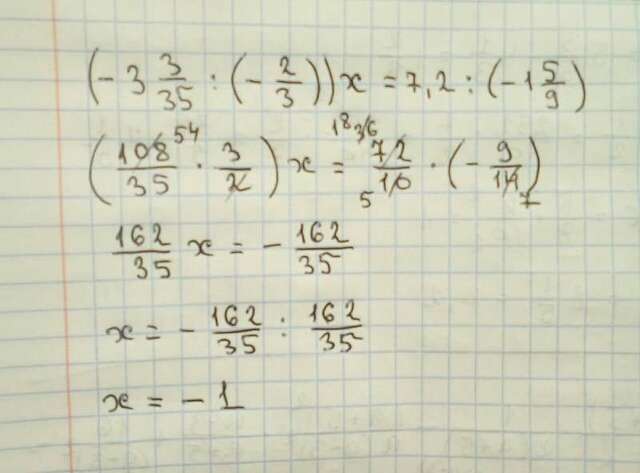 (-3 3/35 : (-2/3))x = 7,2 : (-1 5/9)
(108/35 54 · 3/2)x = 18 36 72/10 5 · (-9/14 7)
162/35 x = -162/35
x = -162/35 : 162/35
x = -1